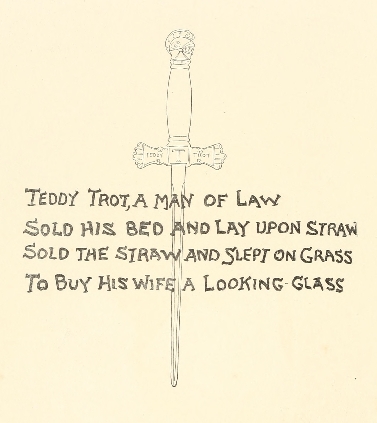 TEDDY TROT
TEDDY TROT, A MAN OF LAW
SOLD HIS BED AND LAY UPON STRAW
SOLD THE STRAW AND SLEPT ON GRASS
TO BUY HIS WIFE A LOOKING-GLASS